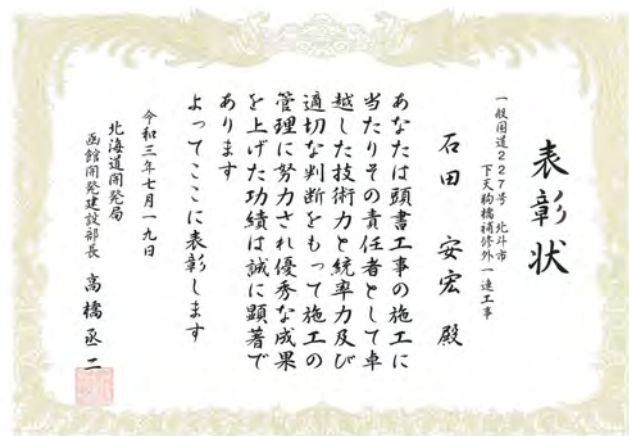 表彰状
一般国道227号 北斗市
下天狗橋補修外一連工事
石田 安宏 殿
あなたは頭書工事の施工に
当たりその責任者として卓
越した技術力と統率力及び
適切な判断をもって施工の
管理に努力され優秀な成果
を上げた功績は誠に顕著で
あります
よってここに表彰します
令和三年七月一九日
北海道開発局
函館開発建設部長 高橋丞二